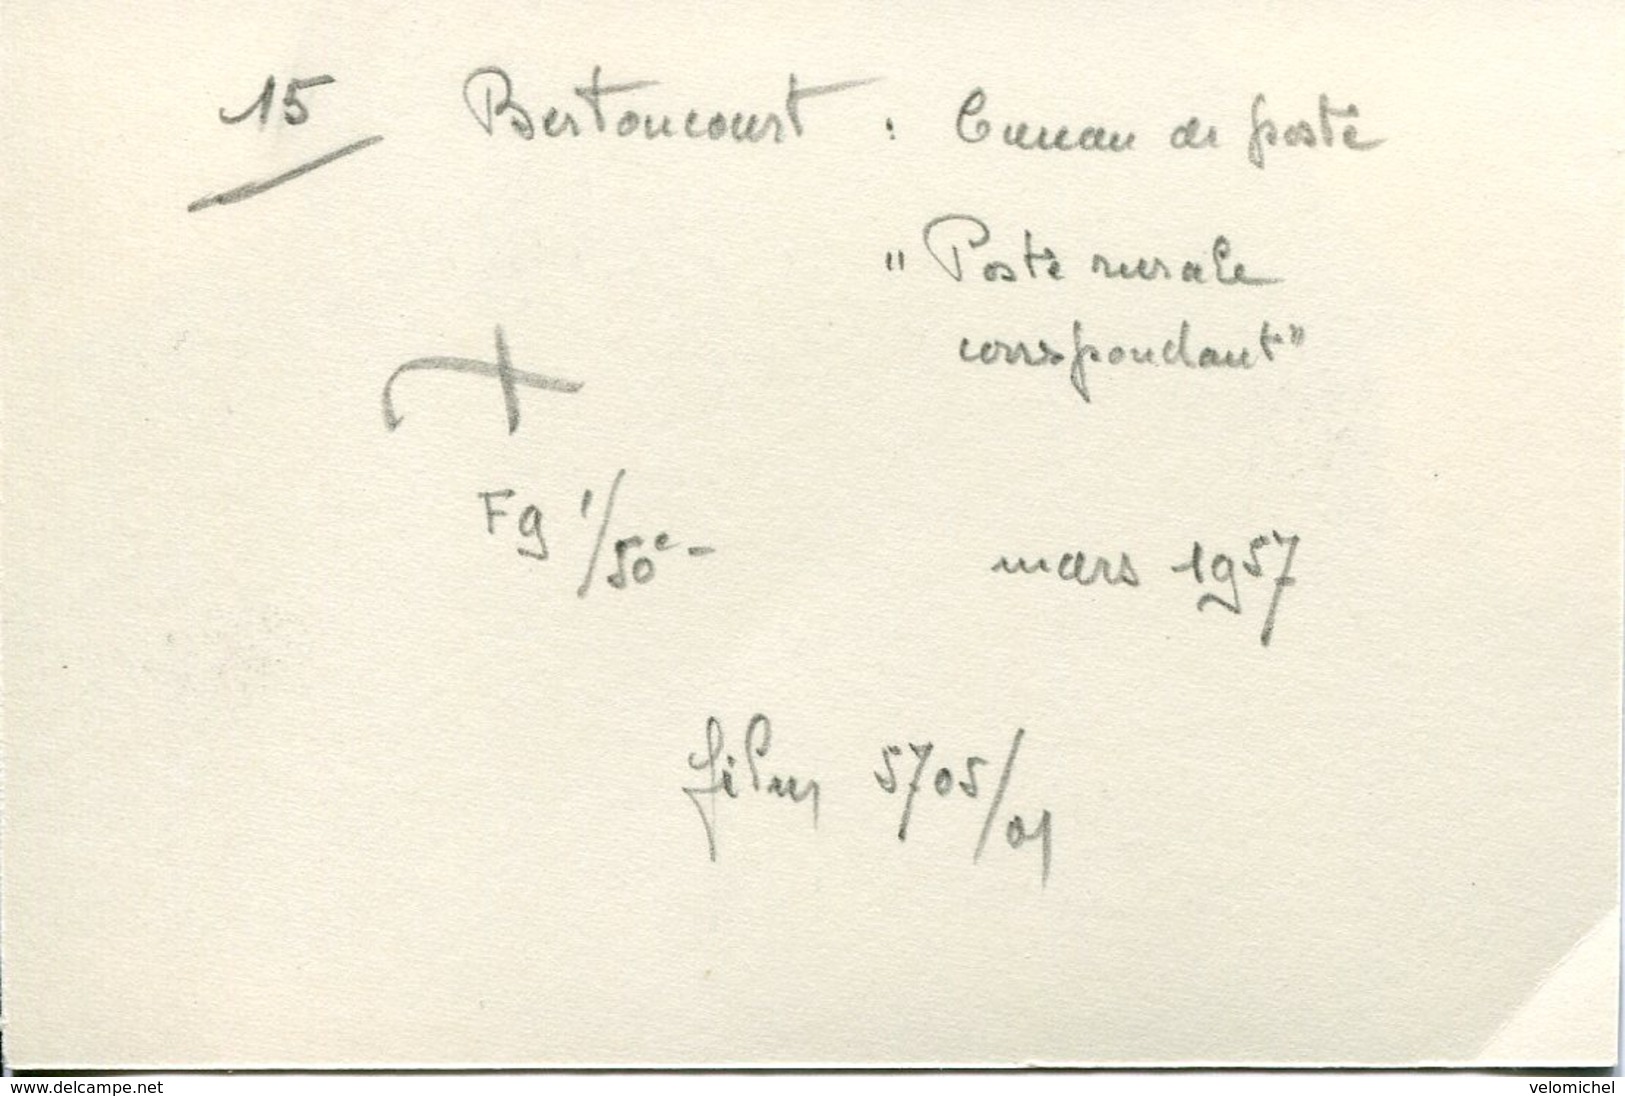 15 Bertoncourt : Bureau de poste
"Poste rurale
correspondant"
Fg 1/50e -
mars 1957
film 5705/01
www.delcampe.net
velomichel